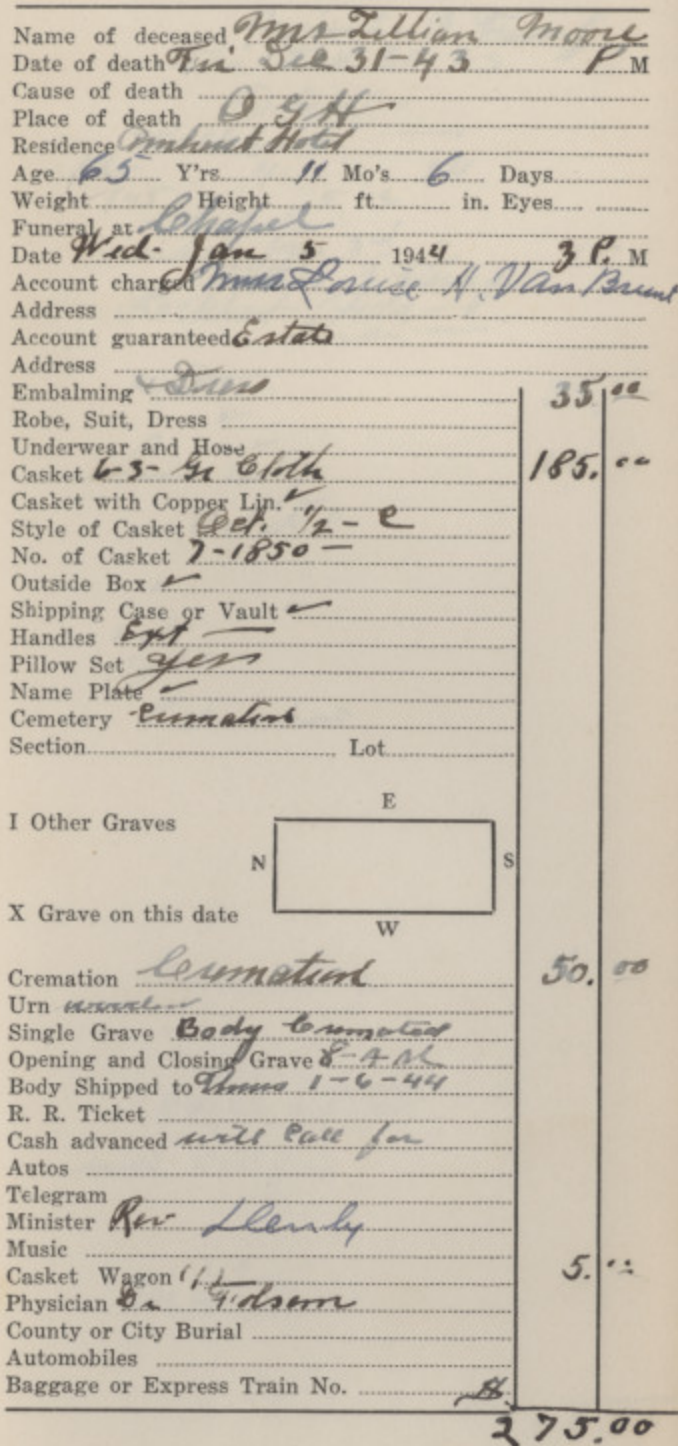 Name of deceased Mrs Lillian Moore
Date of death Fri Dec 31-43 P M
Cause of death
Place of death O G H
Residence Amherst Hotel
Age 65 Y'rs 11 Mo's 6 Days
Weight Height ft. in. Eyes
Funeral at Chapel
Date Wed- Jan 5 1944 3 P. M
Account charged Mrs Louise H. Van Brunt
Address
Account guaranteed Estate
Address
Embalming & Dress 35 00
Robe, Suit, Dress
Underwear and Hose
Casket 6-3- Gr Cloth 185. 00
Casket with Copper Lin. ✓
Style of Casket Oct. 1/2 - C
No. of Casket 7-1850 —
Outside Box ✓
Shipping Case or Vault ✓
Handles Ext —
Pillow Set yes
Name Plate ✓
Cemetery Cremation
Section Lot
E
I Other Graves
N S
X Grave on this date
W
Cremation Cremation 50. 00
Urn
Single Grave Body Cremated
Opening and Closing Grave
Body Shipped to Thurs 1-6-44
R. R. Ticket
Cash advanced will Call for
Autos
Telegram
Minister Rev
Music
Casket Wagon 5. 00
Physician Dr Folsom
County or City Burial
Automobiles
Baggage or Express Train No. H
275.00